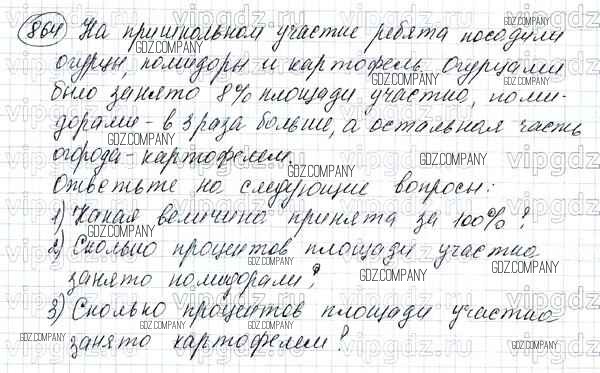 864 На пришкольном участке ребята посадили
огурцы, помидоры и картофель. Огурцами
было занято 8% площади участка, поми-
дорами - в 3 раза больше, а остальная часть
огорода - картофелем.
Ответьте на следующие вопросы:
1) Какая величина принята за 100%?
2) Сколько процентов площади участка
занято помидорами?
3) Сколько процентов площади участка
занято картофелем?